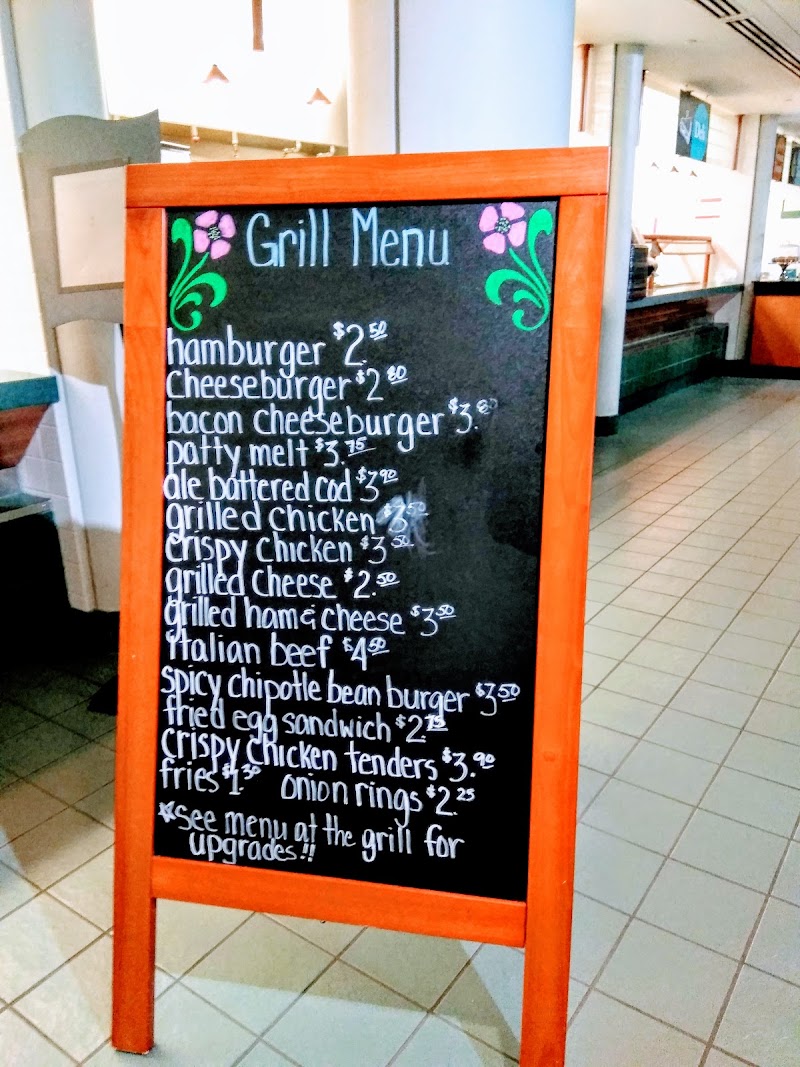 Deli
Grill Menu
hamburger $2.50
cheeseburger $2.80
bacon cheeseburger $3.80
patty melt $3.75
ale battered cod $3.90
grilled chicken $3.50
crispy chicken $3.50
grilled cheese $2.50
grilled ham & cheese $3.50
italian beef $4.50
spicy chipotle bean burger $3.50
fried egg sandwich $2.75
crispy chicken tenders $3.90
fries $1.30 onion rings $2.25
*See menu at the grill for
upgrades!!